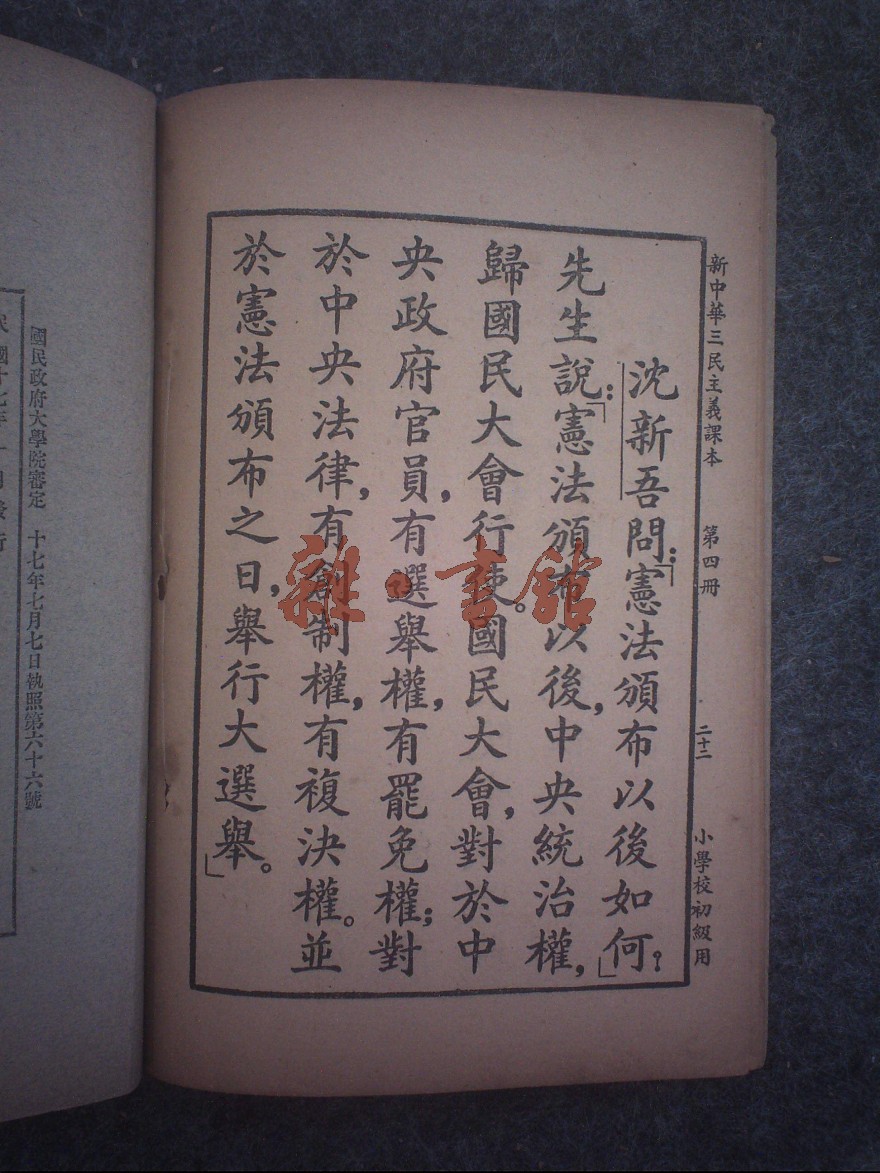 新中華三民主義課本 第四冊 二十二 小學校初級用
沈新吾問:「憲法頒布以後如何?」
先生說:「憲法頒布以後,中央統治權,
歸國民大會行使。國民大會,對於中
央政府官員,有選舉權,有罷免權;對
於中央法律,有創制權,有複決權。並
於憲法頒布之日,舉行大選舉。」
雜·書館
國民政府大學院審定 十七年七月七日執照第六十六號